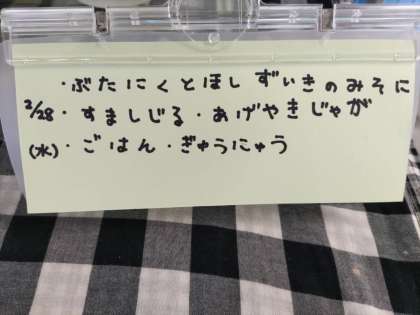 ・ぶたにくとほしずいきのみそに
2/28・すましじる・あげやきじゃが
(水)・ごはん・ぎゅうにゅう